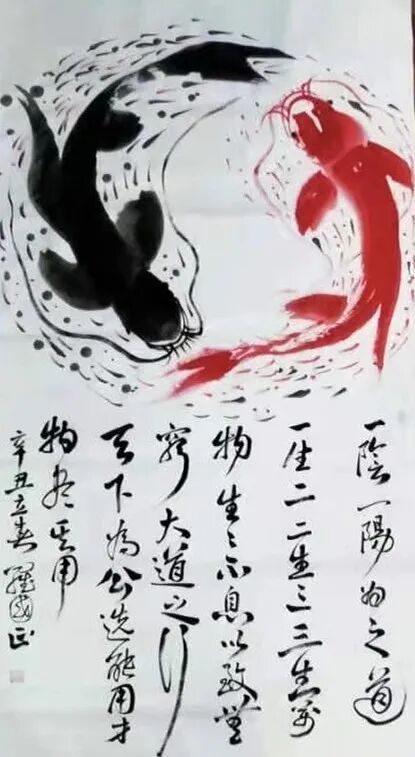 一陰一陽为之道
一生二二生三三生萬
物生生不息以致無
窮大道之行
天下為公选能用才
物尽其用
辛丑立春羅國正